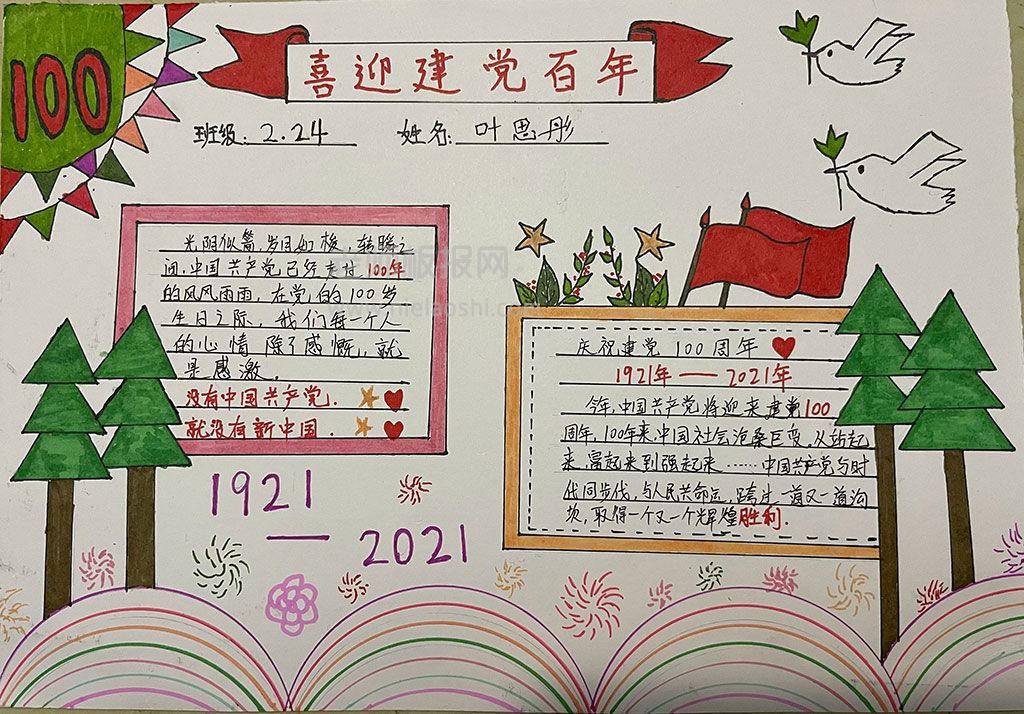 100
喜迎建党百年
班级: 2.24 姓名: 叶思彤
光阴似箭,岁月如梭,转瞬之
间,中国共产党已经走过100年
的风风雨雨,在党的100岁
生日之际,我们每一个人
的心情除了感慨,就
是感激。
没有中国共产党.
就没有新中国.
1921
—
2021
庆祝建党 100周年
1921年——2021年
今年,中国共产党将迎来建党100
周年,100年来,中国社会沧桑巨变,从站起
来,富起来到强起来……中国共产党与时
代同步伐,与人民共命运,跨过一道又一道沟
坎,取得一个又一个辉煌胜利.